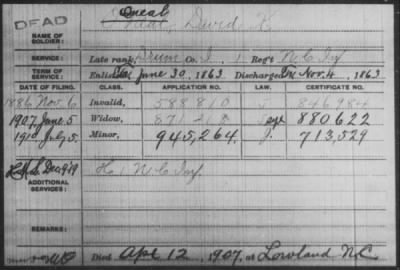 DEAD
Oneal
David K
NAME OF SOLDIER:
SERVICE: Late rank, Drum Co. I, 1 Reg't N.C. Inf
TERM OF SERVICE: Enlisted June 30, 1863 Discharged Nov. 4, 1863
DATE OF FILING. CLASS. APPLICATION NO. LAW. CERTIFICATE NO.
1886 Nov. 6 Invalid, 588810 846984
1907 June 5 Widow, 871218 880622
July 5 Minor, 945,264 J. 713,529
ADDITIONAL SERVICES:
N C Inf.
Died Apr 12, 1907, at Lowland NC